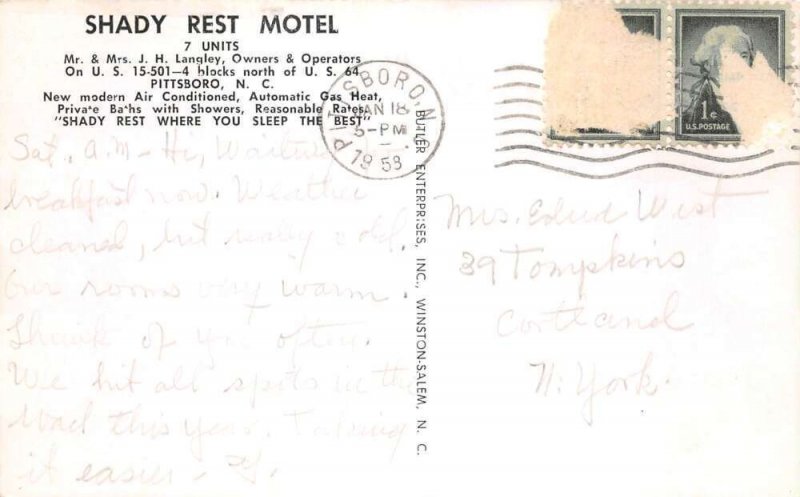 SHADY REST MOTEL
7 UNITS
Mr. & Mrs. J. H. Langley, Owners & Operators
On U. S. 15-501—4 blocks north of U. S. 64
PITTSBORO, N. C.
New modern Air Conditioned, Automatic Gas Heat,
Private Baths with Showers, Reasonable Rates
"SHADY REST WHERE YOU SLEEP THE BEST"
PITTSBORO, N.
JAN 18
5-PM
1958
1¢
U.S. POSTAGE
BUTLER ENTERPRISES, INC., WINSTON-SALEM, N. C.
Sat. A.M - Hi, Waiting
breakfast now. Weather
cleared, but really cold.
Our rooms very warm.
Think of you often.
We hit all spots in the
road this year. Taking
it easier -
Mrs. West
39 Tompkins
Cortland
N. York